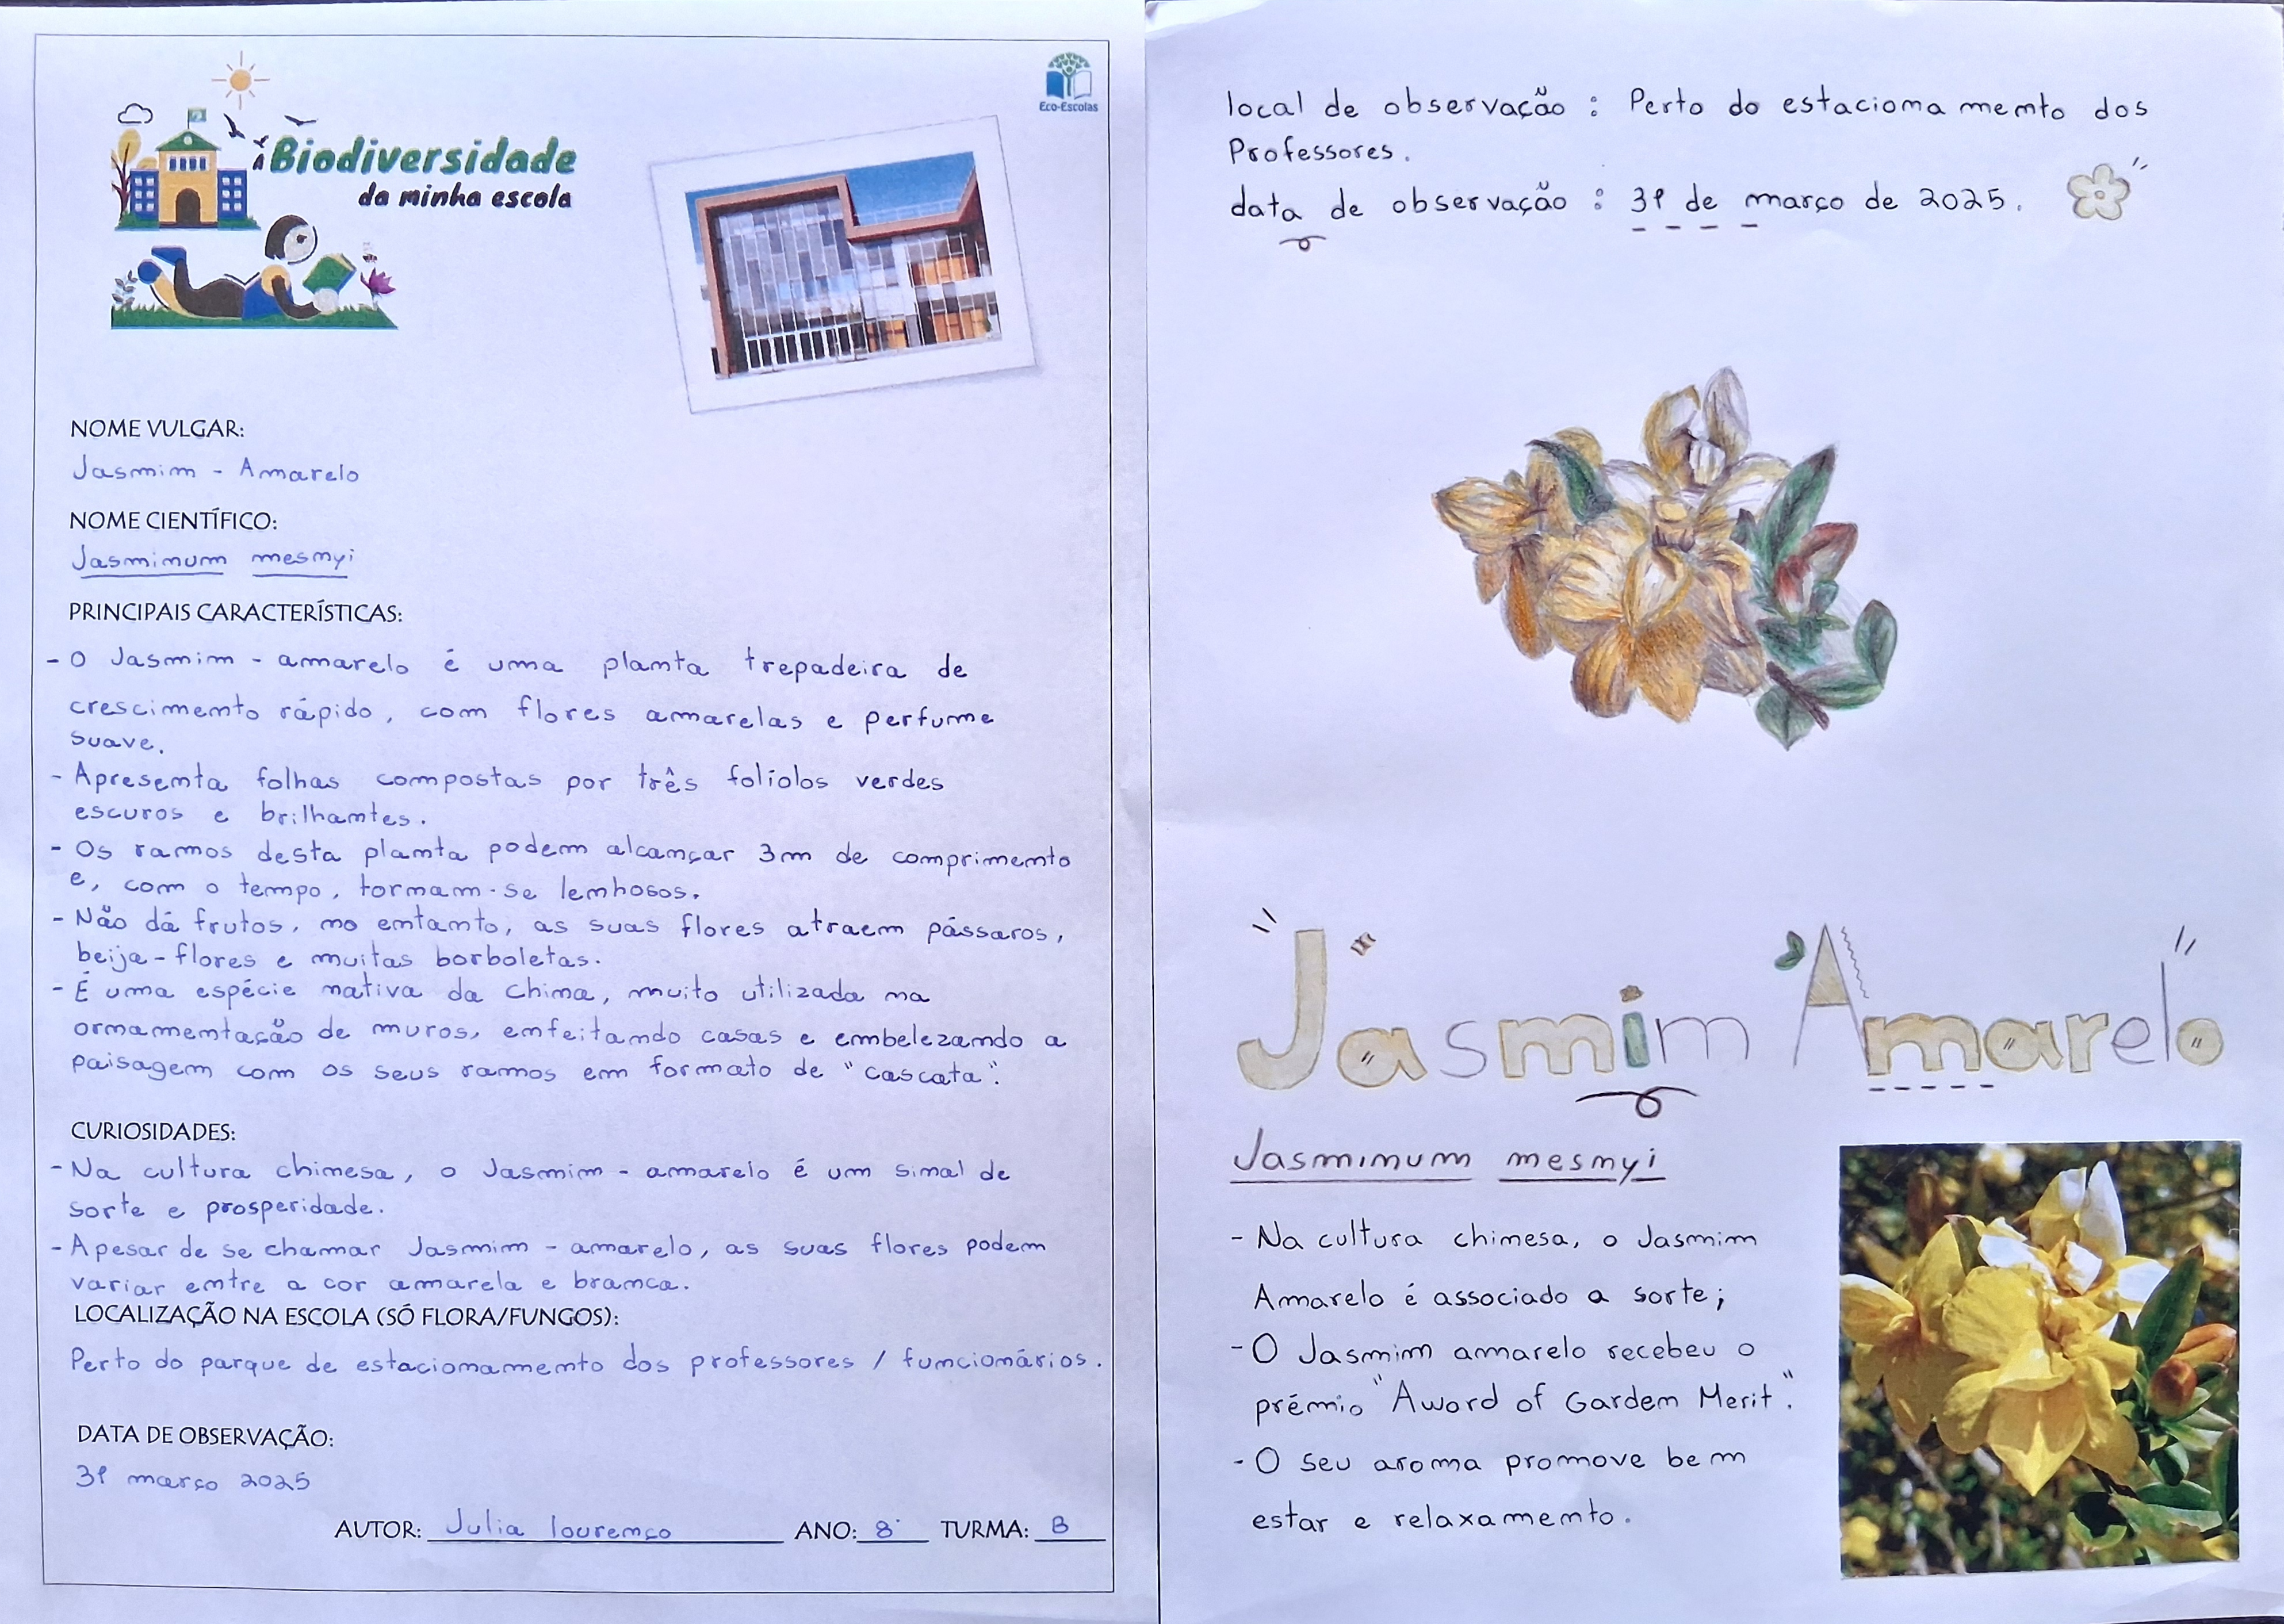 Eco-Escolas
A Biodiversidade
da minha escola
NOME VULGAR:
Jasmim - Amarelo
NOME CIENTÍFICO:
Jasminum mesnyi
PRINCIPAIS CARACTERÍSTICAS:
- O Jasmim - amarelo é uma planta trepadeira de
crescimento rápido, com flores amarelas e perfume
suave.
- Apresenta folhas compostas por três folíolos verdes
escuros e brilhantes.
- Os ramos desta planta podem alcançar 3m de comprimento
e, com o tempo, tornam-se lenhosos.
- Não dá frutos, no entanto, as suas flores atraem pássaros,
beija-flores e muitas borboletas.
- É uma espécie nativa da China, muito utilizada na
ornamentação de muros, enfeitando casas e embelezando a
paisagem com os seus ramos em formato de "cascata".
CURIOSIDADES:
- Na cultura chinesa, o Jasmim - amarelo é um sinal de
sorte e prosperidade.
- Apesar de se chamar Jasmim - amarelo, as suas flores podem
variar entre a cor amarela e branca.
LOCALIZAÇÃO NA ESCOLA (SÓ FLORA/FUNGOS):
Perto do parque de estacionamento dos professores / funcionários.
DATA DE OBSERVAÇÃO:
31 março 2025
AUTOR: Julia lourenço ANO: 8º TURMA: B
local de observação : Perto do estacionamento dos
Professores.
data de observação : 31 de março de 2025.
Jasmim Amarelo
Jasminum mesnyi
- Na cultura chinesa, o Jasmim
Amarelo é associado a sorte;
- O Jasmim amarelo recebeu o
prémio "Award of Garden Merit".
- O seu aroma promove bem
estar e relaxamento.